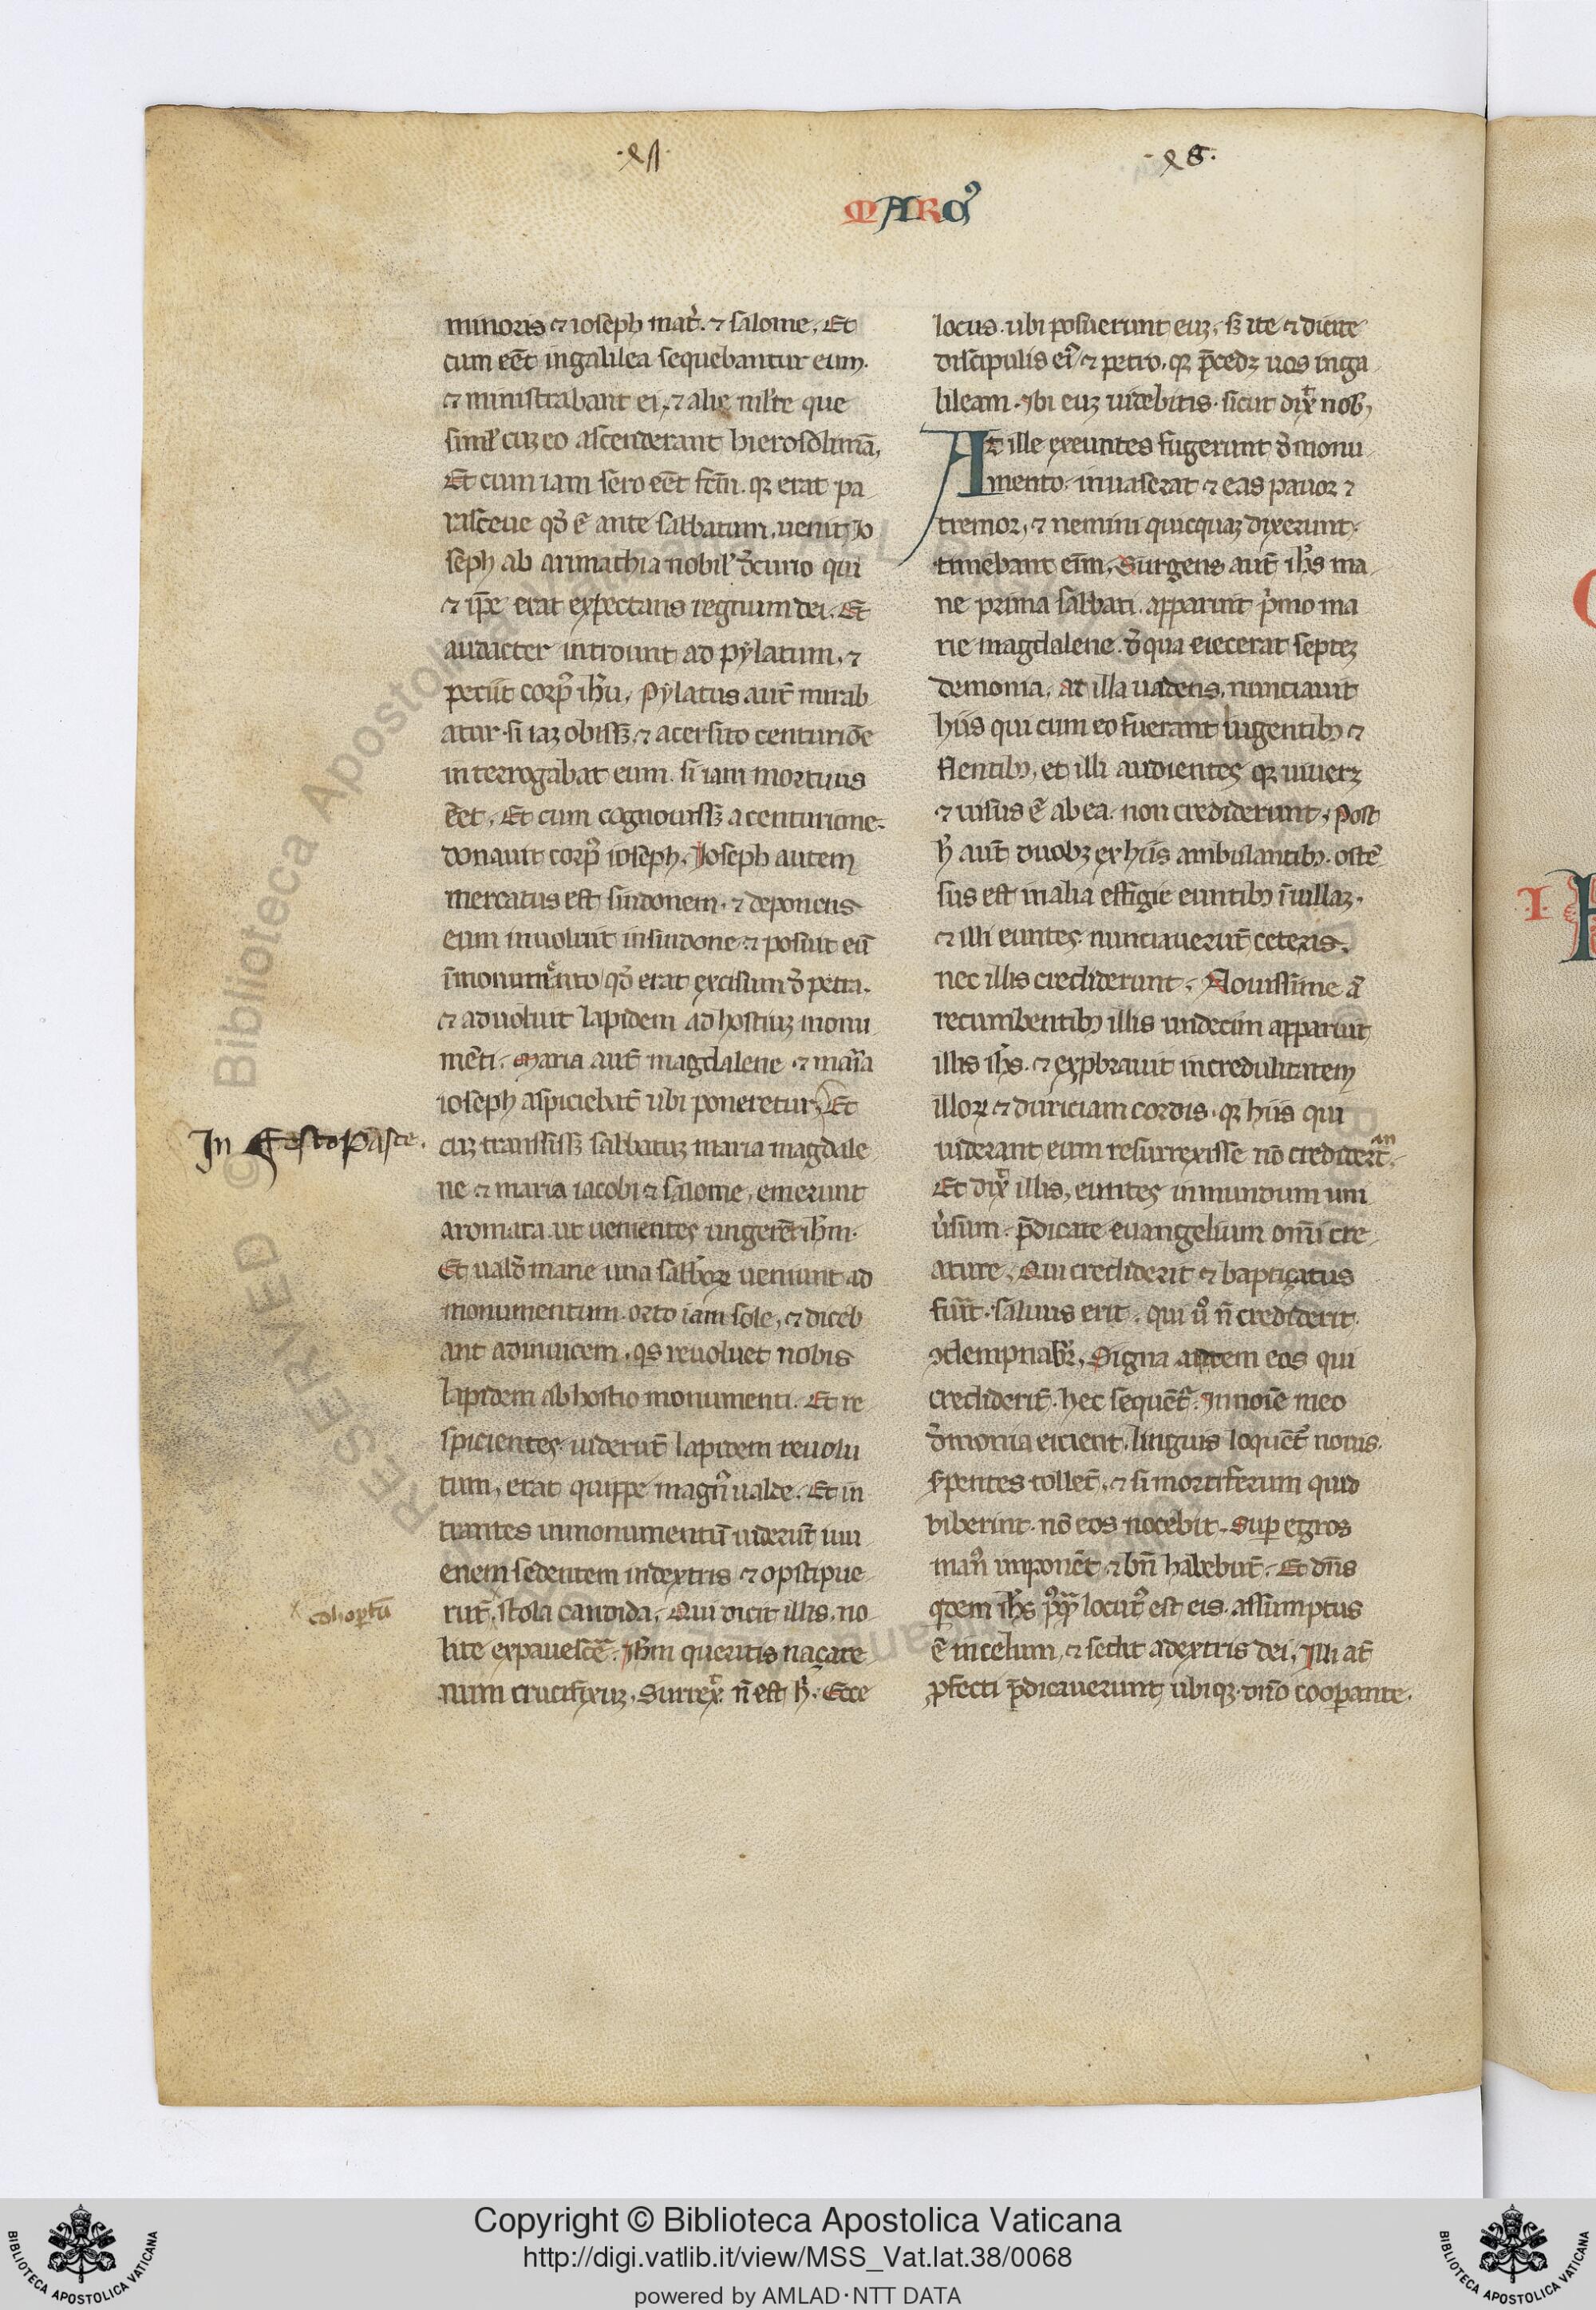 MARCꝰ
minoris ⁊ ioseph mat̾. ⁊ salome. Et
cum eēt in galilea sequebantur eum.
⁊ ministrabant ei. ⁊ alie mĺte que
simĺ cuꝫ eo ascenderant hierosolimā.
Et cum iam sero eēt fcm̄. qꝛ erat pa
rasceue qđ ē ante sabbatum. uenit Jo
seph ab arimathia nobiĺ đcurio qui
⁊ ip̄e erat expectans regnum dei. Et
audacter introiuit ad pylatum. ⁊
petiit corpꝰ ih̄u. Pylatus aut̄ mirab
atur si iaꝫ obissꝫ. ⁊ acersito centurōe
interrogabat eum. si iam mortuus
eēt. Et cum cognouissꝫ a centurione.
donauit corpꝰ ioseph. Ioseph autem
mercatus est sindonem. ⁊ deponens
eum inuoluit in sindone ⁊ posuit eū
ī monumento qđ erat excisum đ petra.
⁊ aduoluit lapidem ad hostiuꝫ monu
mēti. Maria aut̄ magdalene ⁊ maria
ioseph aspiciebāt ubi poneretur. Et
In Festo Pasce.
cuꝫ transissꝫ sabbatuꝫ maria magdale
ne ⁊ maria iacobi ⁊ salome. emerunt
aromata. ut uenientes ungerēt ih̄m.
Et ualđ mane una sabb̄oꝝ ueniunt ad
monumentum. orto iam sole, ⁊ diceb
ant adinuicem. qs reuoluet nobis
lapidem ab hostio monumenti. Et re
spicientes uiderūt lapidem reuolu
tum, erat quippe magnꝰ ualde. Et in
trantes in monumentū uiderūt iuu
enem sedentem in dextris ⁊ opstipue
cohoptū
rūt. stola candida. Qui dicit illis. no
lite expauescē. Ih̄m queritis naçare
num crucifixuꝫ. Surrex̾. n̄ est h̾. Ecce
locus. ubi posuerunt euꝫ. sꝫ ite ⁊ dicite
discipulis eiꝰ ⁊ petro. qꝛ p̄cedꝫ uos in ga
lileam. Ibi euꝫ uidebitis. sicut dix̾ nob̾.
At ille exeuntes fugerunt đ monu
mento. inuaserat ⁊ eas pauor ⁊
tremor. ⁊ nemini quicquaꝫ dixerunt.
timebant eīm. Surgens aut̄ ih̄s ma
ne prima sabbati. apparuit p̾mo ma
rie magdalene. đ qua eiecerat septeꝫ
demonia. at illa uadens. nunciauit
hiis qui cum eo fuerant lugentibꝫ ⁊
flentibꝫ, et illi audientes qꝛ uiuerꝫ
⁊ uisus ē ab ea. non crediderunt. Post
h̾ aut̄ duobꝫ ex hiis ambulantibꝫ. ostē
sus est in alia effigie euntibꝫ ī uillaꝫ.
⁊ illi euntes nunciauerūt ceteris.
nec illis crediderunt. Nouissime ā
recumbentibꝫ illis undecim apparuit
illis ih̄s. ⁊ exp̱brauit incredulitatem
illoꝝ ⁊ duriciam cordis. qꝛ hiis qui
uiderant eum resurrexisse nō crediderāt.
Et dix̾ illis, euntes in mundum uni
ūsum. p̄dicate euangelium omīi cre
ature. Qui crediderit ⁊ baptiçatus
fuīt. saluus erit. qui ūo n̄ crediderit.
ꝯdempnab̾r. Signa autem eos qui
crediderīt. hec sequēt̾. In noīe meo
đmonia eicient. linguis loquēt̾ nouis.
s̾pentes tollēt. ⁊ si mortiferum quid
biberint. nō eos nocebit. Suꝑ egros
manꝰ imponēt ⁊ bn̄ habebūt. Et dn̄s
qdem ih̄s pꝰqꝫ locutꝰ est eis. assumptus
ē in celum, ⁊ sedit a dextris dei. Illi at̄
ꝓfecti p̄dicauerunt ubiqꝫ. dn̄o cooꝑante.
Copyright © Biblioteca Apostolica Vaticana
http://digi.vatlib.it/view/MSS_Vat.lat.38/0068
powered by AMLAD·NTT DATA
BIBLIOTECA APOSTOLICA VATICANA
BIBLIOTECA APOSTOLICA VATICANA